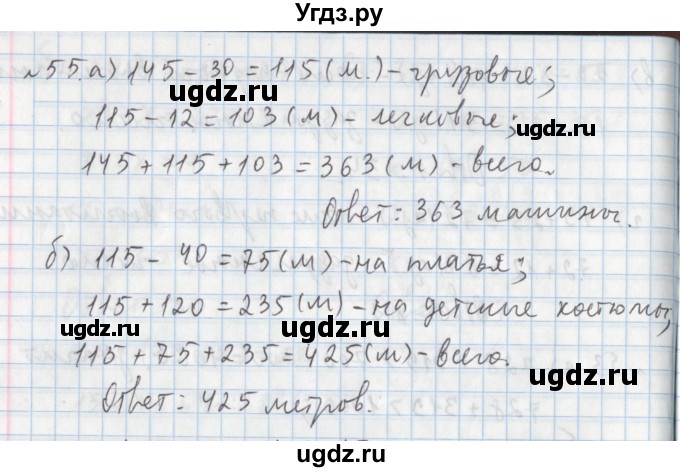 Угдз.ру
№55.а) 145 - 30 = 115 (м.) - грузовые;
ugdz.ru ugdz.ru
115 - 12 = 103 (м) - легковые;
ugdz.ru
145 + 115 + 103 = 363 (м) - всего.
ugdz.ru ugdz.ru
Ответ: 363 машины.
б) 115 - 40 = 75 (м) - на платья;
ugdz.ru
115 + 120 = 235 (м) - на детские костюмы;
ugdz.ru
115 + 75 + 235 = 425 (м) - всего.
ugdz.ru
Ответ: 425 метров.
ugdz.ru
ugdz.ru